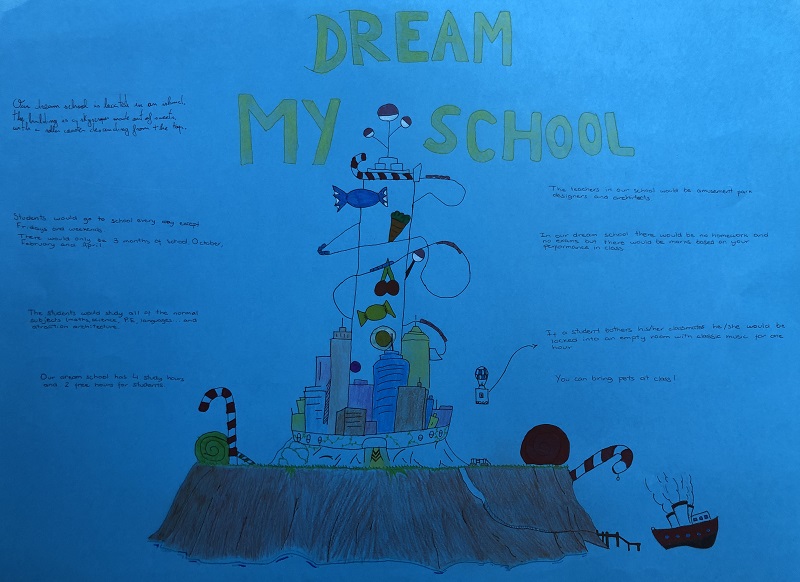 DREAM
MY SCHOOL
Our dream school is located in an island,
the building is a skyscraper made out of sweets,
with a roller coaster descending from the top.
Students would go to school every day except
Fridays and weekends
There would only be 3 months of school: October,
February and April
The students would study all of the normal
subjects (maths, science, P.E, languages... and
attraction architecture.
Our dream school has 4 study hours
and 2 free hours for students.
The teachers in our school would be amusement park
designers and architects
In our dream school there would be no homework and
no exams but there would be marks based on your
performance in class.
If a student bothers his/her classmates he/she would be
locked into an empty room with classic music for one
hour
You can bring pets at class!